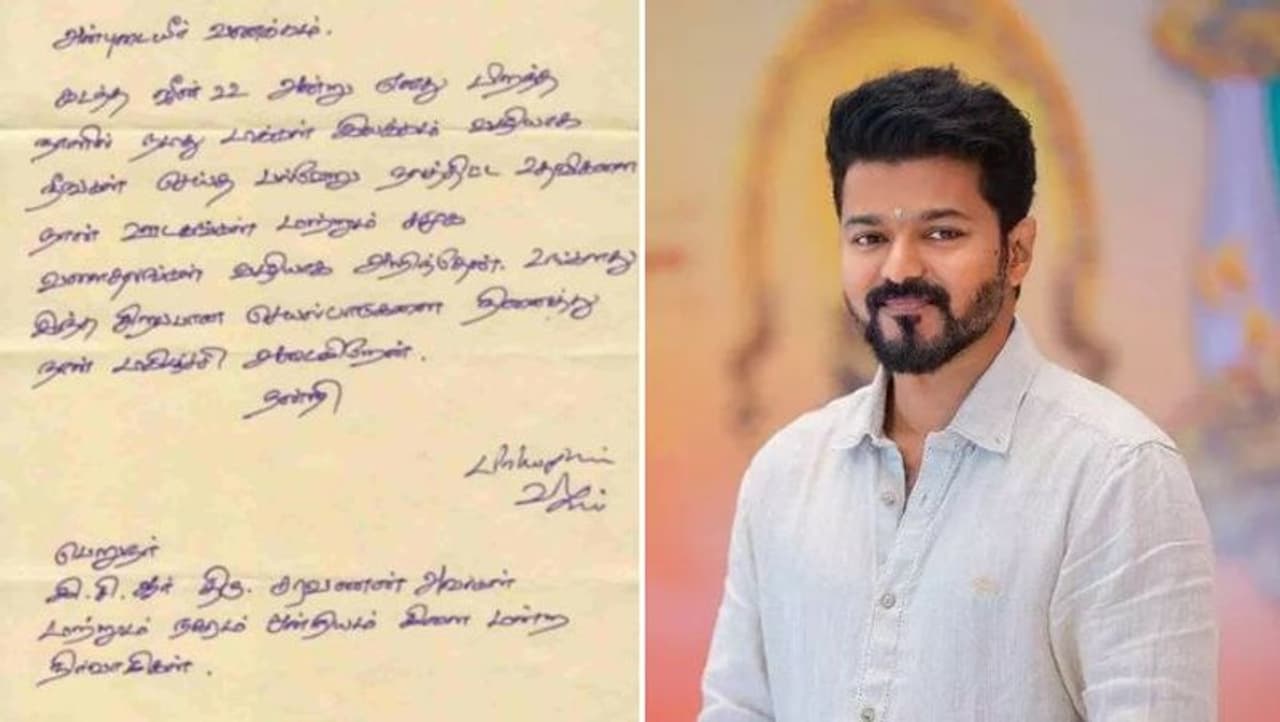 அன்புடையீர் வணக்கம்.
கடந்த ஜீன் 22 அன்று எனது பிறந்த
நாளில் நமது மக்கள் இயக்கம் வழியாக
நீங்கள் செய்த பல்வேறு நலத்திட்ட உதவிகளை
நான் ஊடகங்கள் மற்றும் சமூக
வலைதளங்கள் வழியாக அறிந்தேன். உங்களது
இந்த சிறப்பான செயல்பாடுகளை நினைத்து
நான் மகிழ்ச்சி அடைகிறேன்.
நன்றி
பிரியமுடன்
விஜய்
பெறுநர்
இ.சி.ஆர் திரு. சரவணன் அவர்கள்
மற்றும் நகரம் ஒன்றியம் கிளை மன்ற
நிர்வாகிகள்.